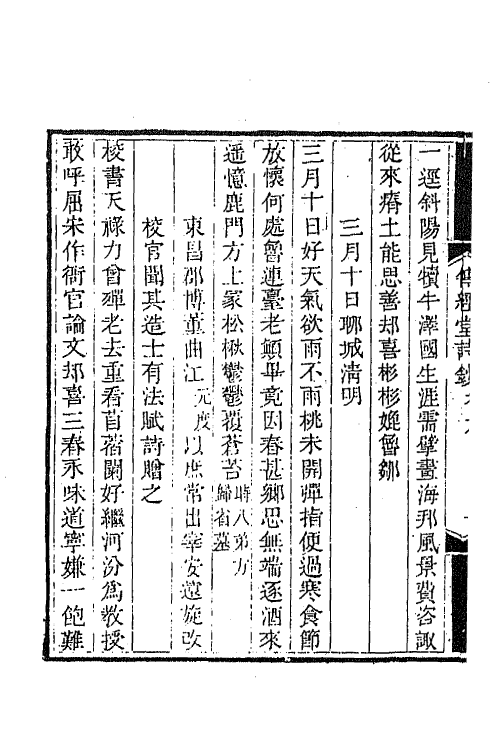 一逕斜陽見犢牛澤國生涯需擘畫海邦風景費咨諏
從來瘠土能思善却喜彬彬媲魯鄒
三月十日聊城淸明
三月十日好天氣欲雨不雨桃未開彈指便過寒食節
放懷何處魯連臺老顛畢竟因春甚鄉思無端逐酒來
遥憶鹿門方上冢松楸鬱鬱覆蒼苔時八弟方歸省墓
東昌郡博董曲江元度以庶常出宰安遠旋改
校官聞其造士有法賦詩贈之
校書天祿力曾殫老去重看苜蓿闌好繼河汾爲敎授
敢呼屈宋作衙官論文却喜三春永味道寧嫌一飽難
傳經堂詩鈔